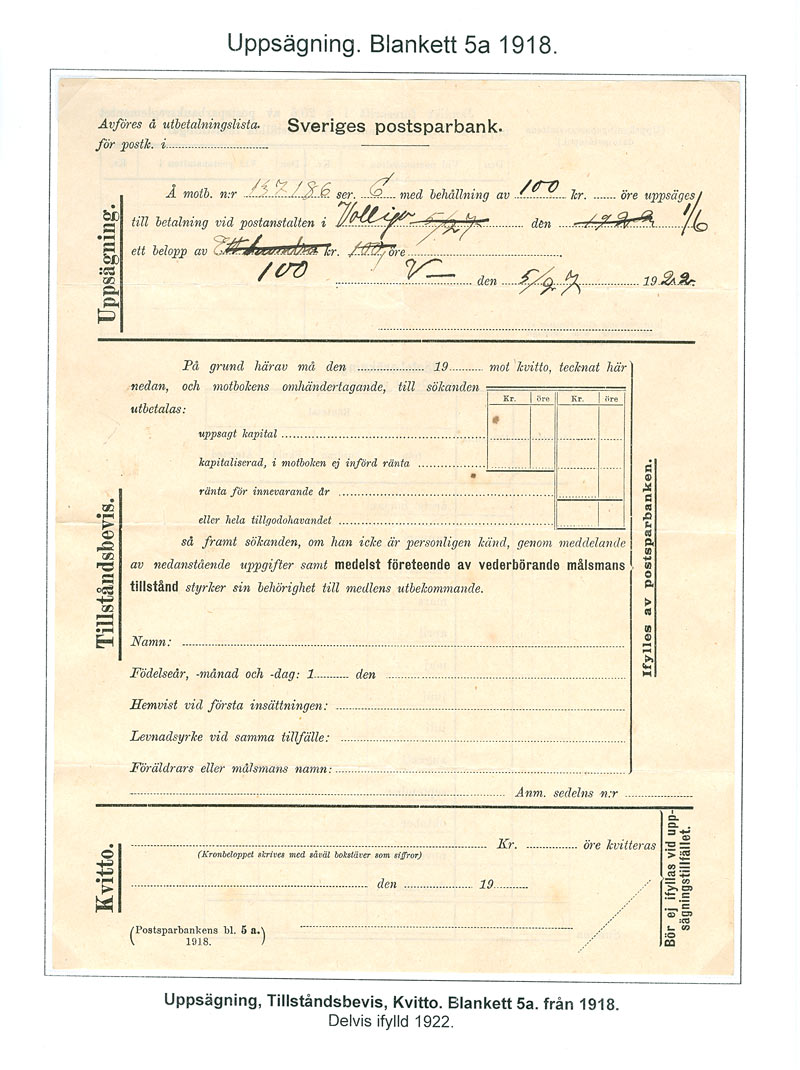 Uppsägning. Blankett 5a 1918.
Avföres å utbetalningslista.
för postk. i
Sveriges postsparbank.
Uppsägning.
Å motb. n:r 137186 ser. 6 med behållning av 100 kr. öre uppsäges
till betalning vid postanstalten i 5/2 7 den 1922 1/6
ett belopp av Ett hundra kr. 100, öre
100 V— den 5/2 7 1922.
På grund härav må den 19 mot kvitto, tecknat här
nedan, och motbokens omhändertagande, till sökanden
utbetalas:
Kr. öre Kr. öre
uppsagt kapital
kapitaliserad, i motboken ej införd ränta
ränta för innevarande år
eller hela tillgodohavandet
Tillståndsbevis.
så framt sökanden, om han icke är personligen känd, genom meddelande
av nedanstående uppgifter samt medelst företeende av vederbörande målsmans
tillstånd styrker sin behörighet till medlens utbekommande.
Ifylles av postsparbanken.
Namn:
Födelseår, -månad och -dag: 1 den
Hemvist vid första insättningen:
Levnadsyrke vid samma tillfälle:
Föräldrars eller målsmans namn:
Anm. sedelns n:r
Kvitto.
Kr. öre kvitteras
(Kronbeloppet skrives med såväl bokstäver som siffror)
den 19
Bör ej ifyllas vid upp-
sägningstillfället.
(Postsparbankens bl. 5 a.)
1918.
Uppsägning, Tillståndsbevis, Kvitto. Blankett 5a. från 1918.
Delvis ifylld 1922.